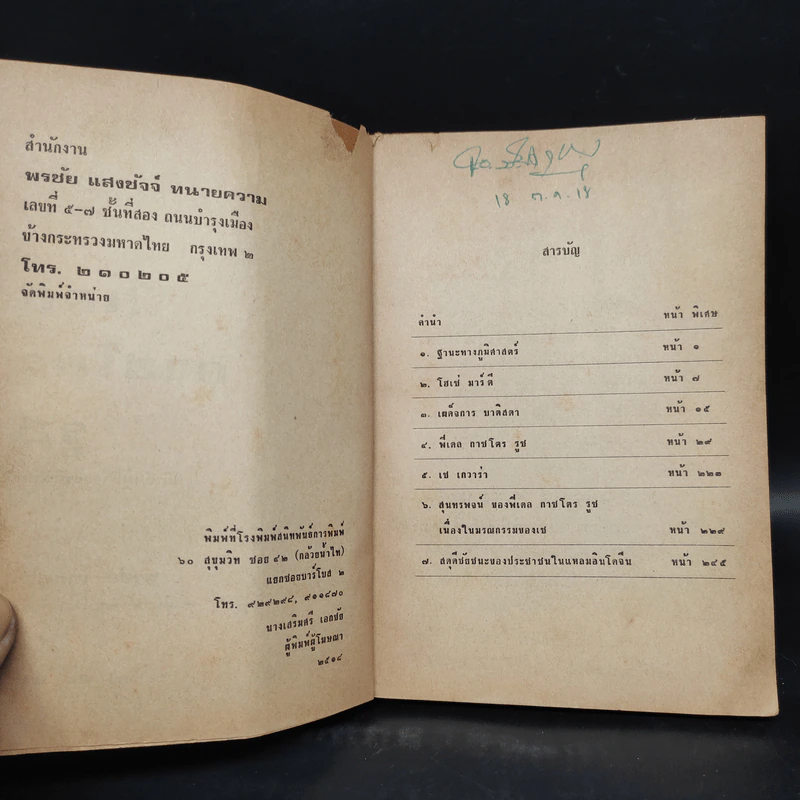 สำนักงาน
พรชัย แสงชัจจ์ ทนายความ
เลขที่ ๕-๗ ชั้นที่สอง ถนนบำรุงเมือง
ข้างกระทรวงมหาดไทย กรุงเทพ ๒
โทร. ๒๑๐๒๐๕
จัดพิมพ์จำหน่าย
พิมพ์ที่โรงพิมพ์สนิทพันธ์การพิมพ์
๖๐ สุขุมวิท ซอย ๔๒ (กล้วยน้ำไท)
แยกซอยบาร์โบส ๒
โทร. ๙๒๙๒๙๘, ๙๑๑๘๗๐
นางเสริมศรี เอกชัย
ผู้พิมพ์ผู้โฆษณา
๒๕๑๘
18 ต.ค. 18
สารบัญ
คำนำ หน้า พิเศษ
๑. ฐานะทางภูมิศาสตร์ หน้า ๑
๒. โฮเซ่ มาร์ตี หน้า ๗
๓. เผด็จการ บาติสตา หน้า ๑๕
๔. ฟีเดล กาซโตร รูซ หน้า ๒๙
๕. เช เกวาร่า หน้า ๒๒๑
๖. สุนทรพจน์ ของฟีเดล กาซโตร รูซ
เนื่องในมรณกรรมของเช หน้า ๒๒๙
๗. สดุดีชัยชนะของประชาชนในแหลมอินโดจีน หน้า ๒๔๕